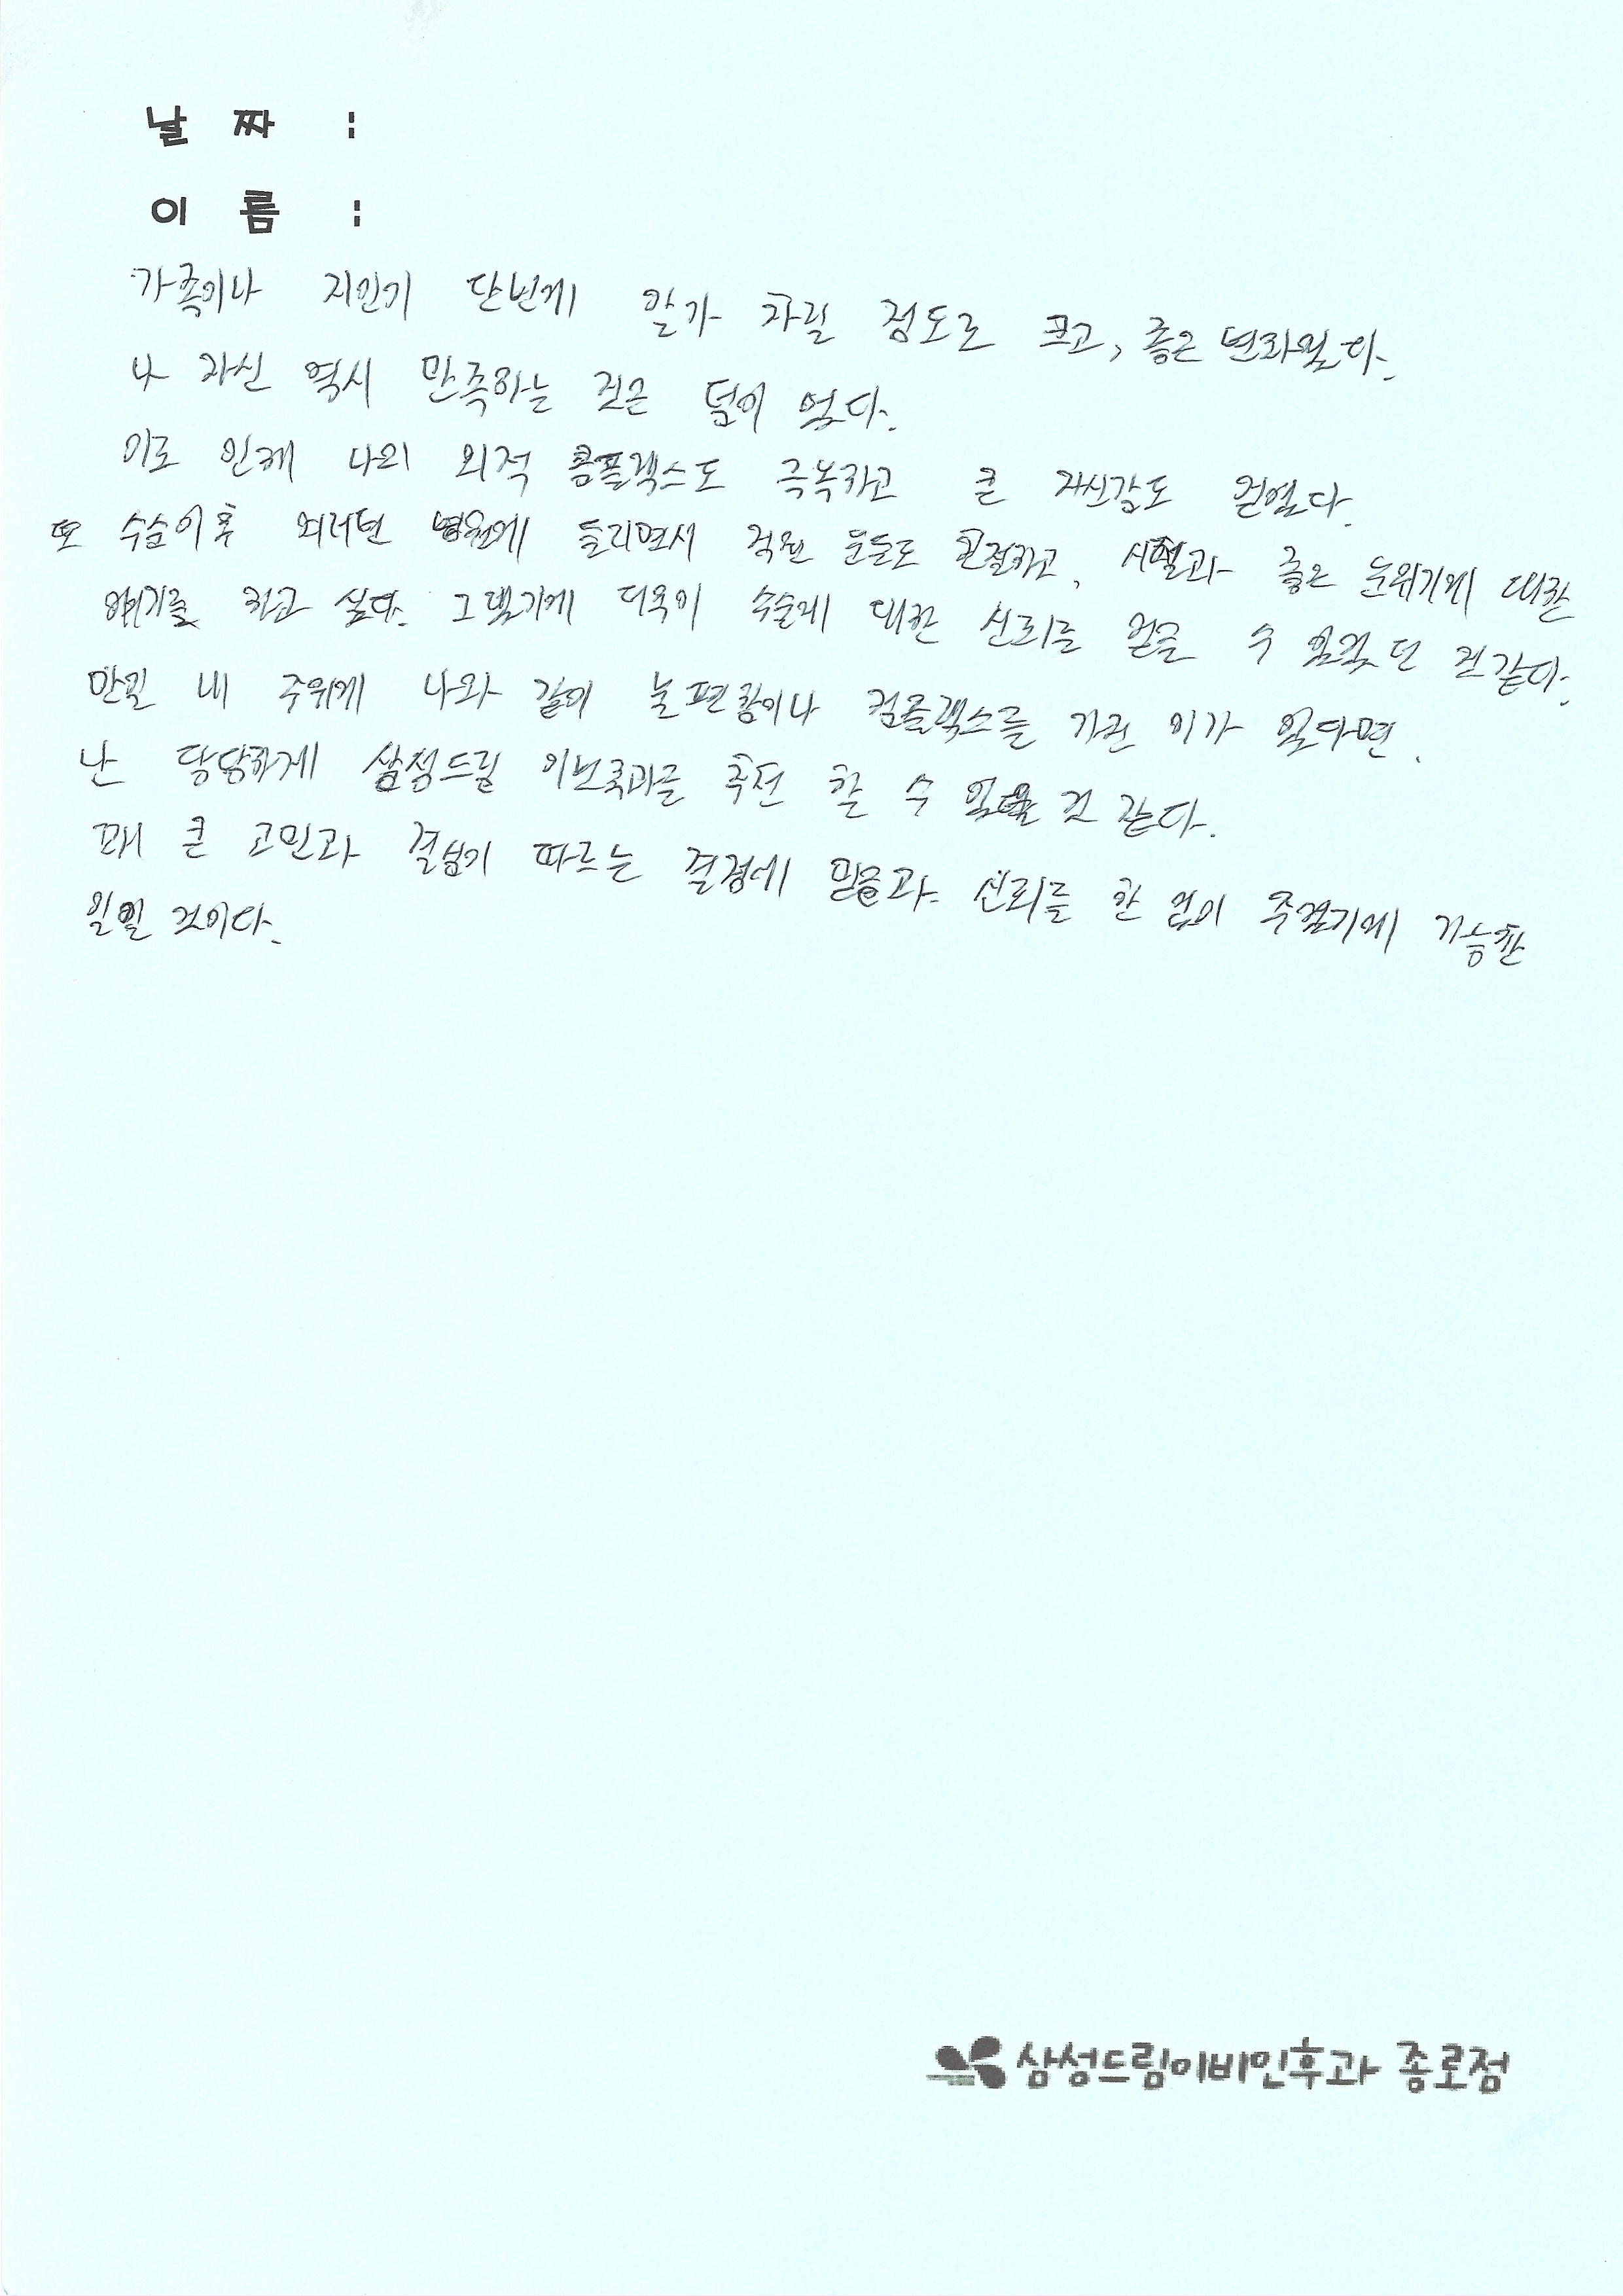 날 짜 :
이 름 :
가족이나 지인이 단번에 알아 차릴 정도로 크고, 좋은 변화였다.
나 자신 역시 만족하는 것은 덤이 었다.
이로 인해 나의 외적 콤플렉스도 극복하고 큰 자신감도 얻었다.
또 수술이후 여러번 병원에 들리면서 직원 분들도 친절하고, 시설과 좋은 분위기에 대한
얘기를 하고 싶다. 그렇기에 더욱이 수술에 대한 신뢰를 얻을 수 있었던 것같다.
만일 내 주위에 나와 같이 불편함이나 컴플렉스를 가진 이가 있다면.
난 당당하게 삼성드림 이빈후과를 추천 할 수 있을 것 같다.
꽤 큰 고민과 결심이 따르는 결정에 믿음과 신뢰를 한 없이 주었기에 가능한
일일 것이다.
삼성드림이비인후과 종로점